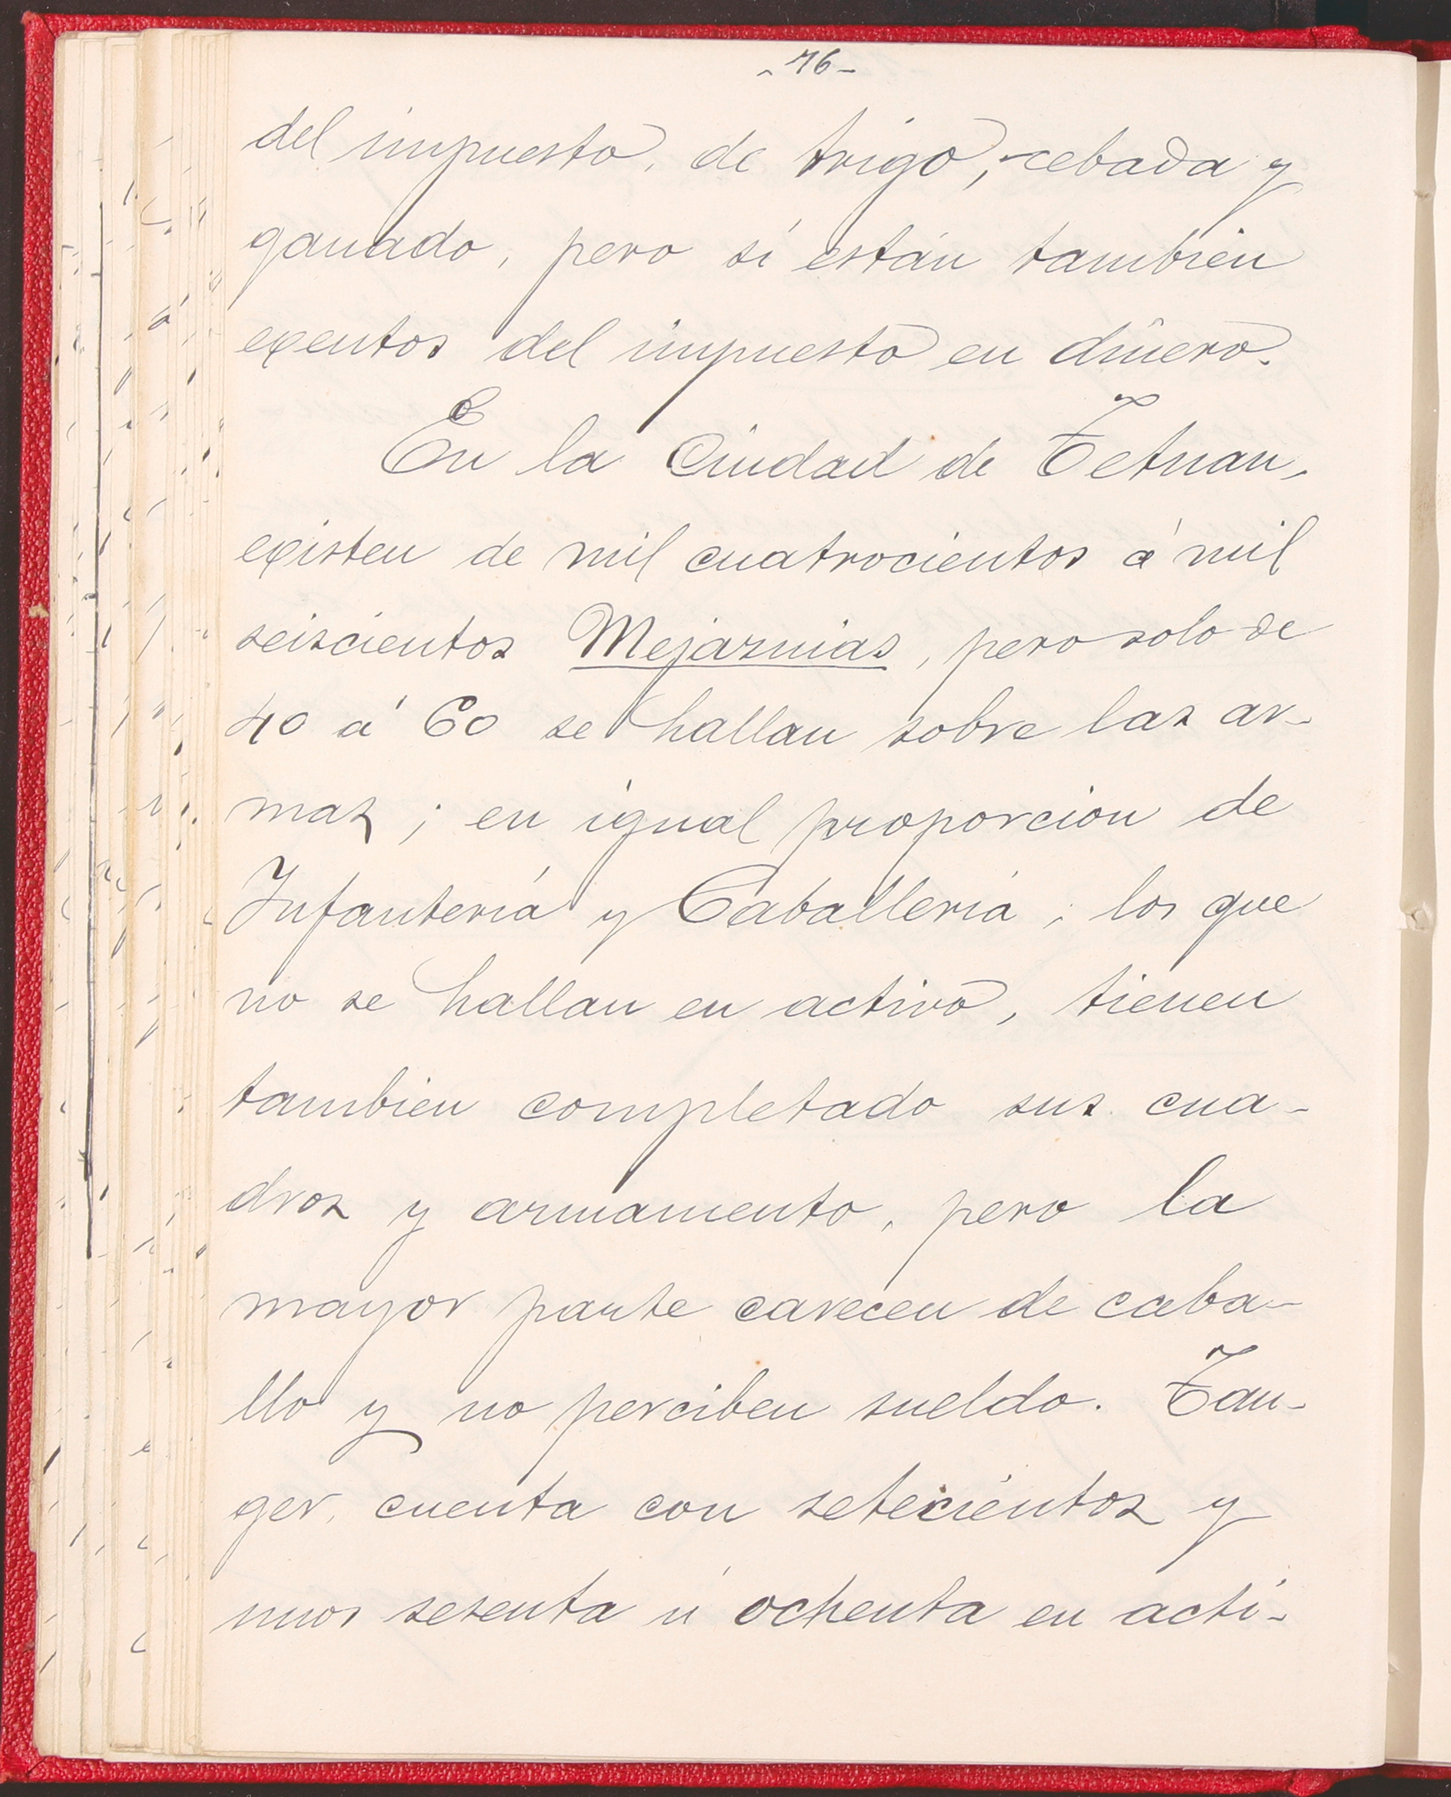 - 76 -
del impuesto, de trigo, cebada y
ganado, pero sí están tambien
exentos del impuesto en dinero.
En la Ciudad de Tetuan,
existen de mil cuatrocientos á mil
seiscientos Mejaznias, pero solo de
40 á 60 se hallan sobre las ar-
mas; en igual proporcion de
Infantería y Caballería; los que
no se hallan en activo, tienen
tambien completado sus cua-
dros y armamento, pero la
mayor parte carecen de caba-
llo y no perciben sueldo. Tan-
ger, cuenta con setecientos y
unos sesenta ú ochenta en acti-